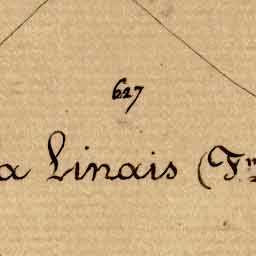 627
a Linais (Fm